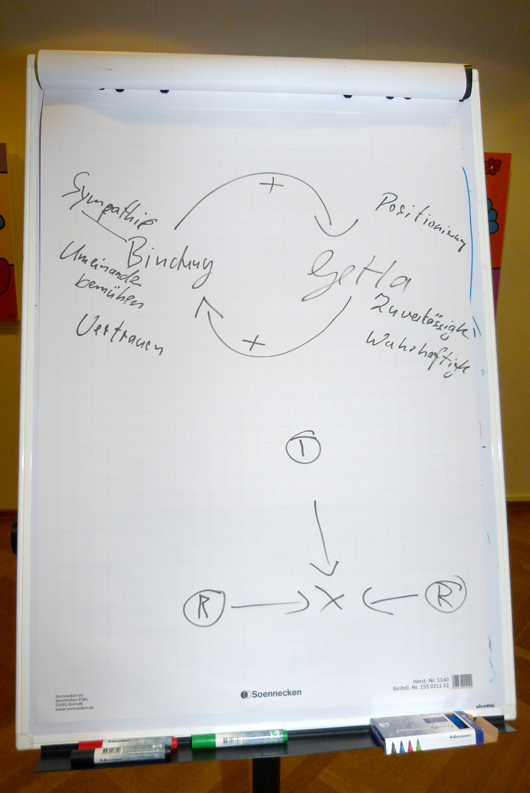 +
Sympathie
Positionierung
Bindung
GeHa
Umeinander
bemühen
Zuverlässigk
Vertrauen
Wahrhaftigk
+
T
R
X
R
Soennecken eG
Soennecken-Platz
51491 Overath
www.soennecken.de
Soennecken
Herst.-Nr. 1140
Bestell.-Nr. 155 0211 02